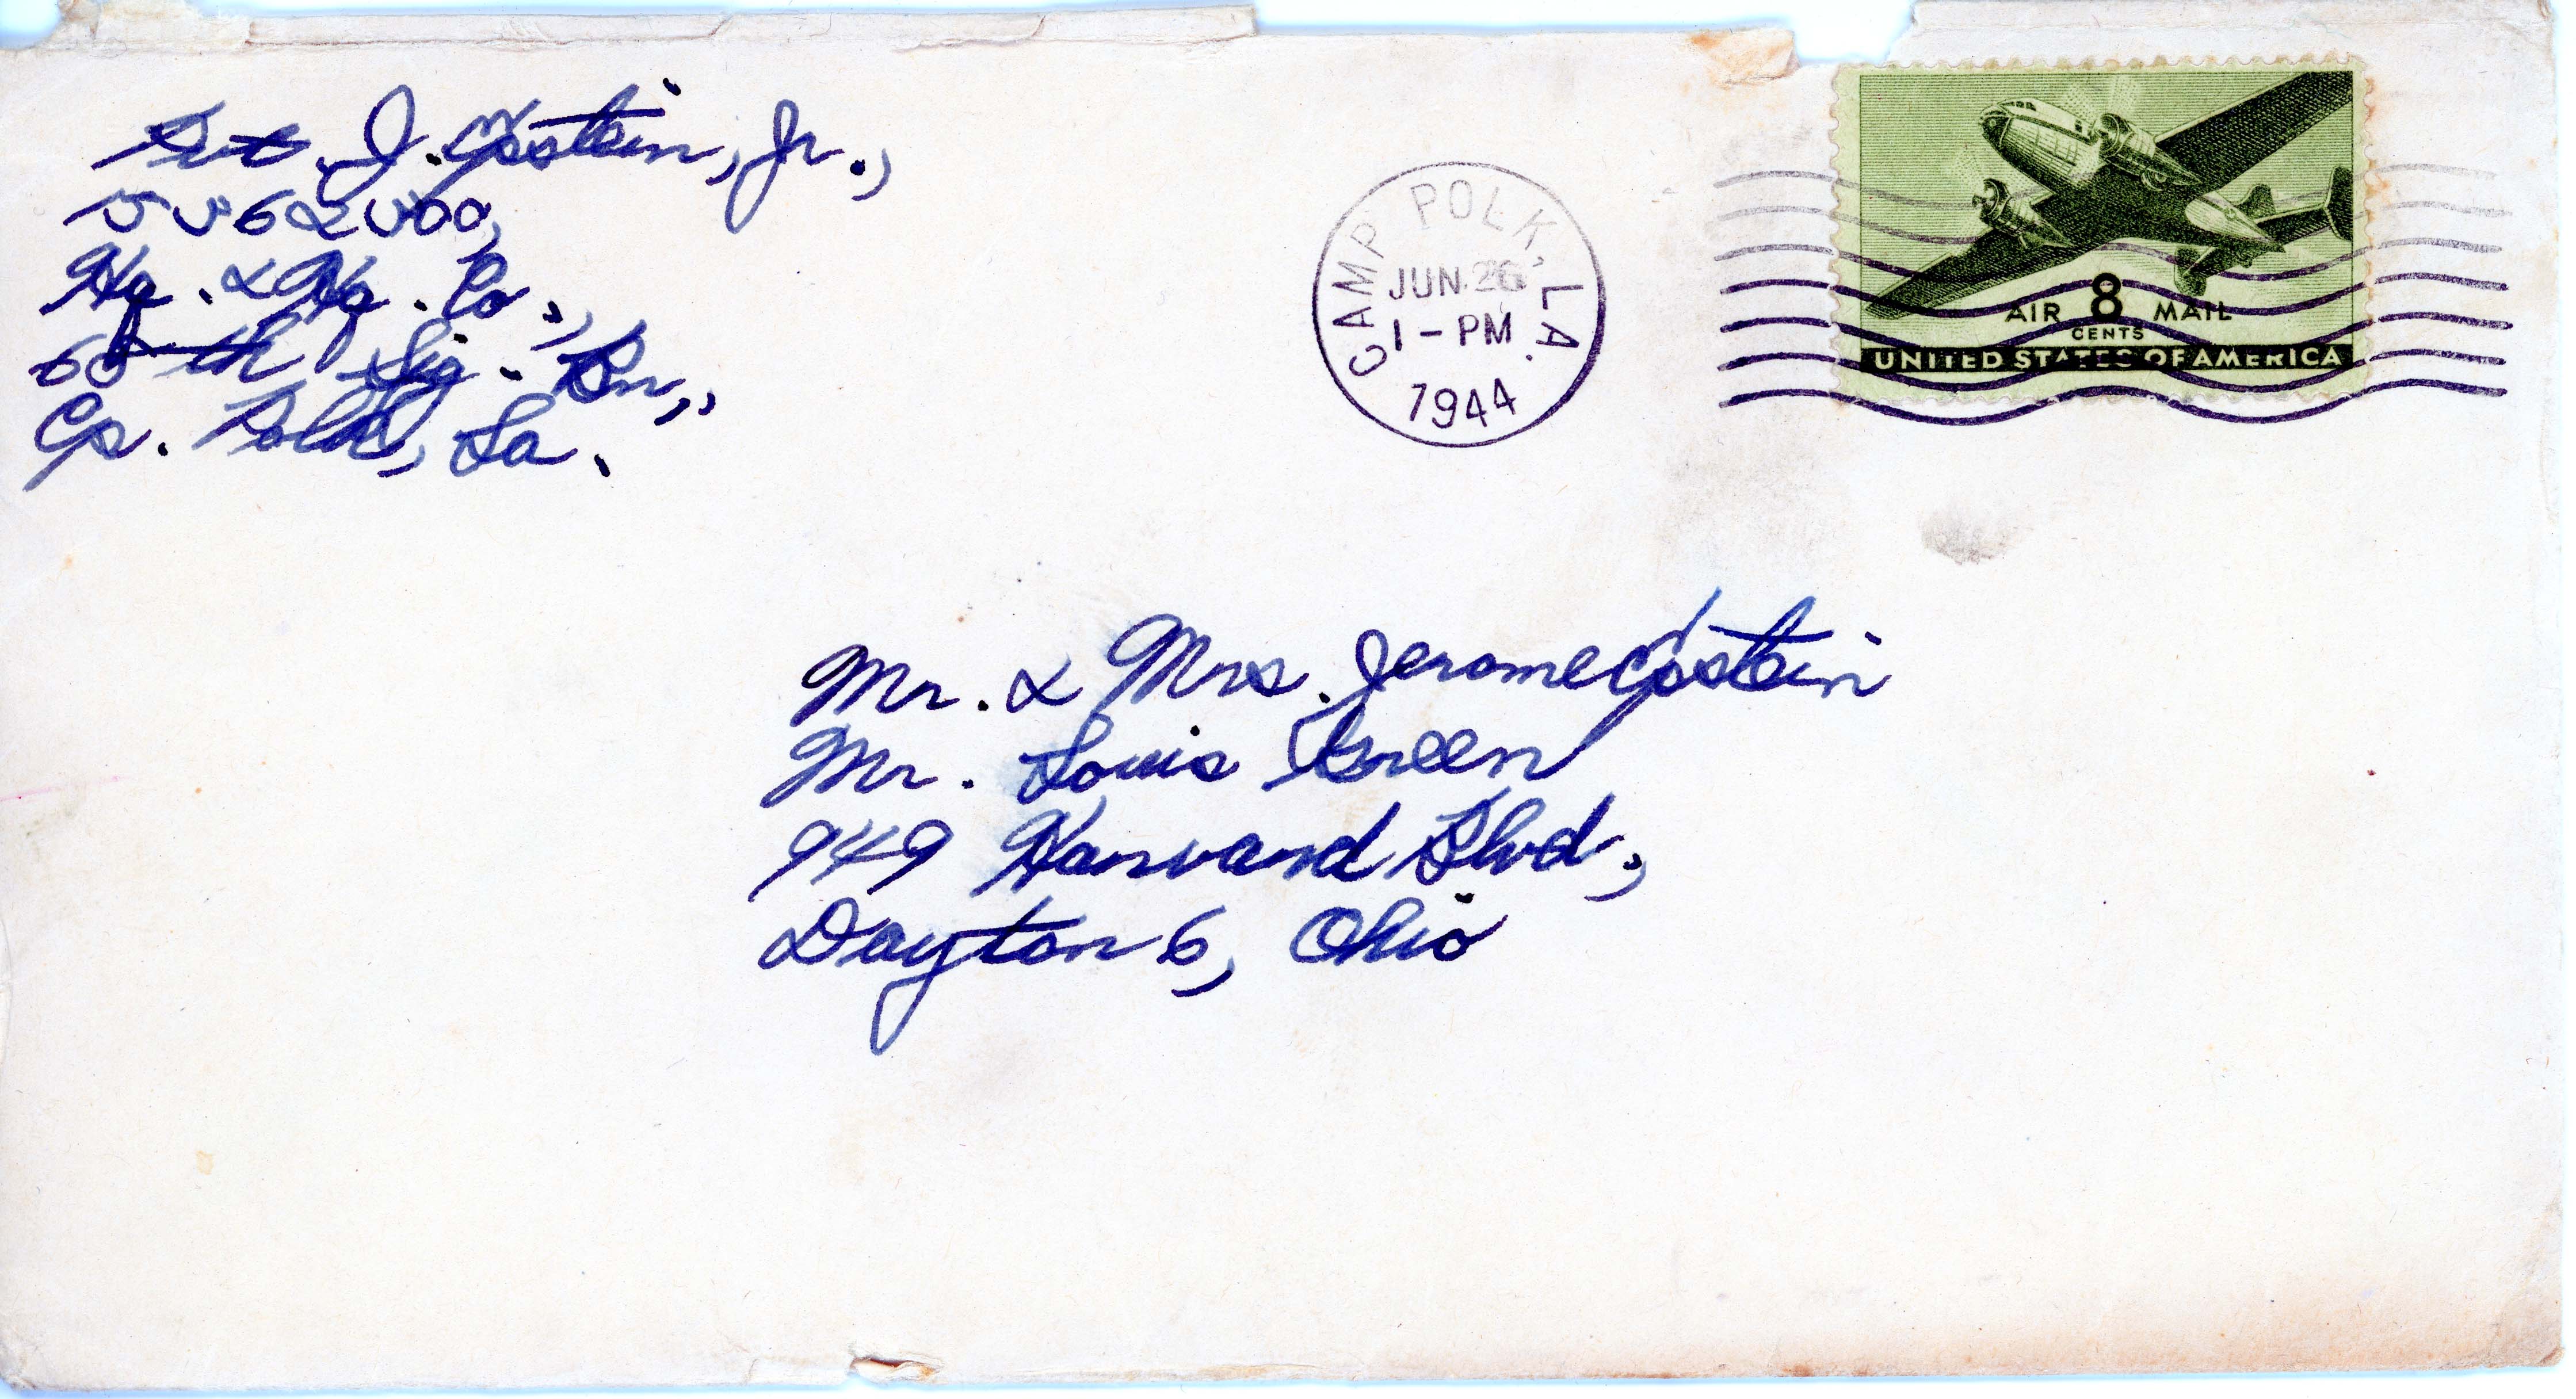 Pvt. J. Epstein, Jr.,
Hq. & Hq. Co.,
65th Sig. Bn.,
Cp. Polk, La.
CAMP POLK, LA.
JUN 26
1-PM
1944
AIR 8 MAIL
CENTS
UNITED STATES OF AMERICA
Mr. & Mrs. Jerome Epstein
Mr. Louis Green
949 Harvard Blvd.,
Dayton 6, Ohio